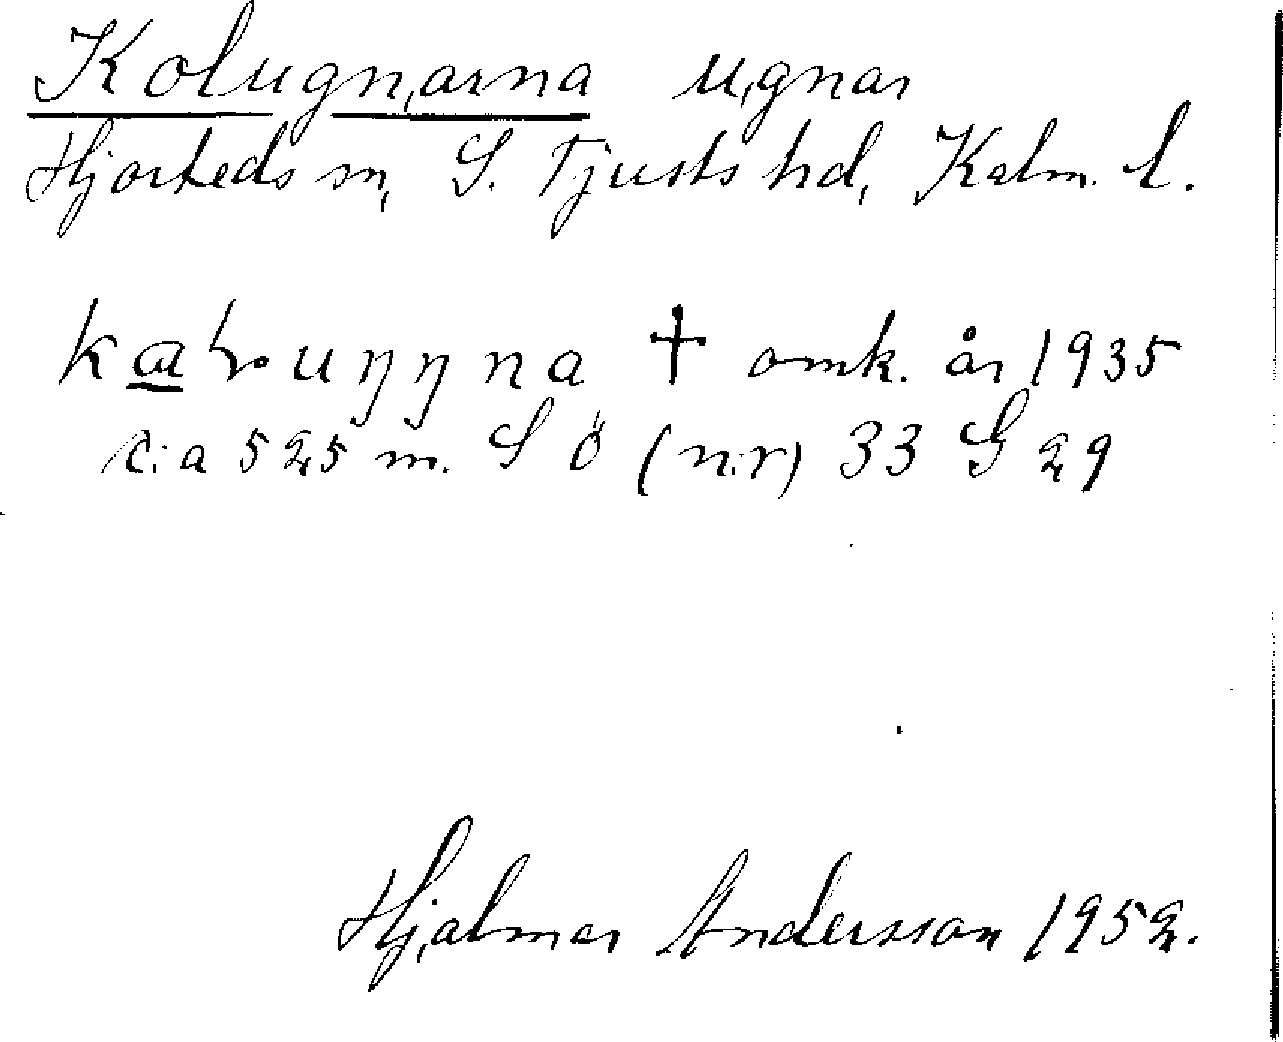 Kolugnarna ugnar
Hjorteds sn, S. Tjusts hd, Kalm. l.
† omk. år 1935
c:a 525 m. S Ö (n:r) 33 G 29
Hjalmar Andersson 1952.